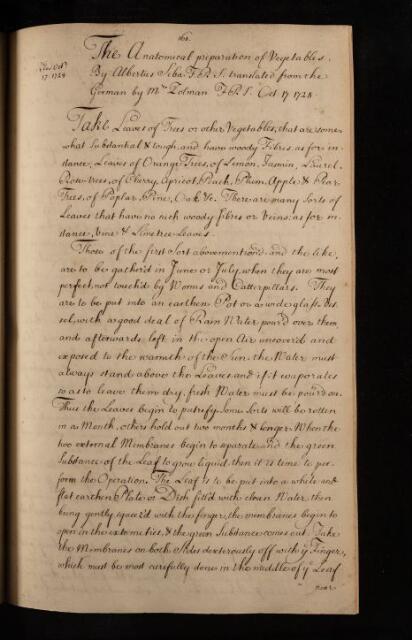 162.
The Anatomical preparation of Vegetables.
17 1728
By Albertus Seba F.R.S. translated from the
German by Mr Zolman F.R.S. Oct 17 1728
Take Leaves of Trees or other Vegetables, that are some-
what Substantial & tough, and have woody Fibres. as for in-
stance, Leaves of Orange Trees, of Lemon, Jasmin, Laurel.
Rose-trees, of Cherry, Apricot, Peach, Plum, Apple & Pear
Trees, of Poplar, Pine, Oak &c. There are many Sorts of
Leaves that have no such woody fibres or Veins: as for in-
stance, Vine & Limetree Leaves.
Those of the first Sort abovemention'd and the like,
are to be gather'd in June or July, when they are most
perfect, not touch'd by Worms and Catterpillars. They
are to be put into an earthen Pot or a wide glass Ves
sel, with a good deal of Rain Water pour'd over them,
and afterwards left in the open Air uncover'd and
exposed to the warmth of the Sun. the Water must
always stand above the Leaves, and if it evaporates
so as to leave them dry, fresh Water must be pour'd on.
Thus the Leaves begin to putrefy. Some Sorts will be rotten
in a Month, others hold out two months & longer. When the
two external Membranes begin to separate and the green
Substance of the Leaf to grow liquid, then it is time to per-
form the Operation. The Leaf is to be put into a white and
flat earthen Plate or Dish fill'd with clean Water, then
being gently squeez'd with the finger, the membranes begin to
open in the extremities, & the green Substance comes out. Take
the Membranes on both sides dexterously off with ye Finger,
which must be most carefully done in the middle of ye Leaf
near